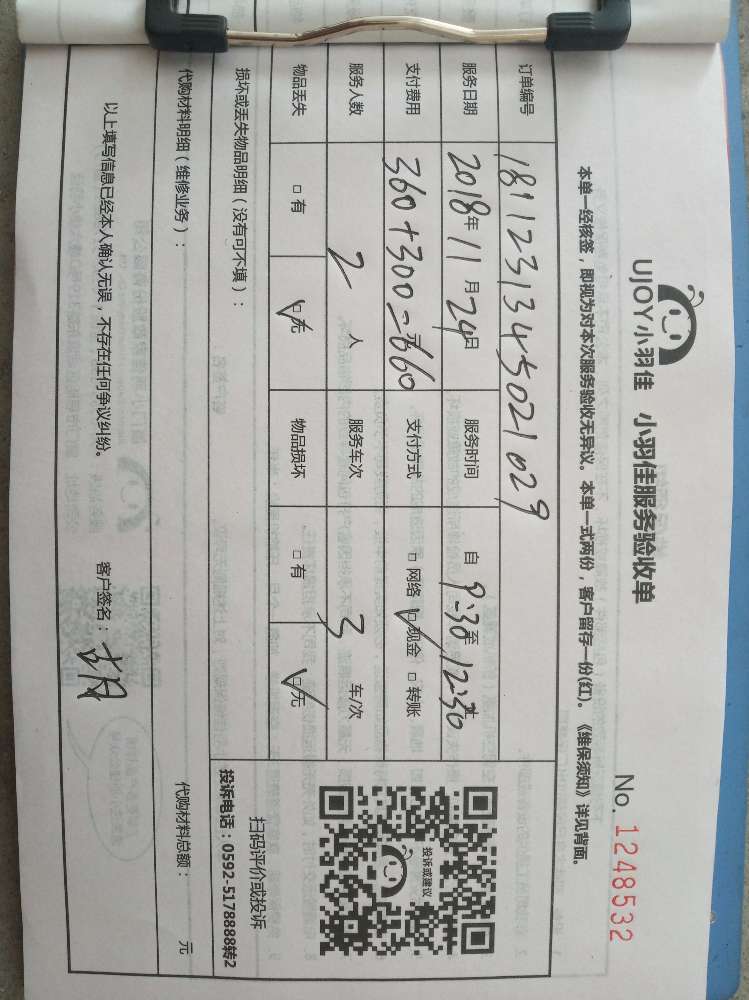 UJOY小羽佳 小羽佳服务验收单
No. 1248532
本单一经核签，即视为对本次服务验收无异议。本单一式两份，客户留存一份(红)。《维保须知》详见背面。
订单编号 1811231345021029
服务日期 2018年11月24日 服务时间 自 9:30至 12:30
支付费用 360+300=660元 支付方式 □ 网络 ☑现金 □ 转账
服务人数 2 人 服务车次 3 车/次
物品丢失 □ 有 ☑无 物品损坏 □ 有 ☑无
投诉或建议
扫码评价或投诉
投诉电话：0592-5178888转2
损坏或丢失物品明细（没有可不填）：
代购材料明细（维修业务）： 代购材料总额： 元
以上填写信息已经本人确认无误，不存在任何争议纠纷。 客户签名：